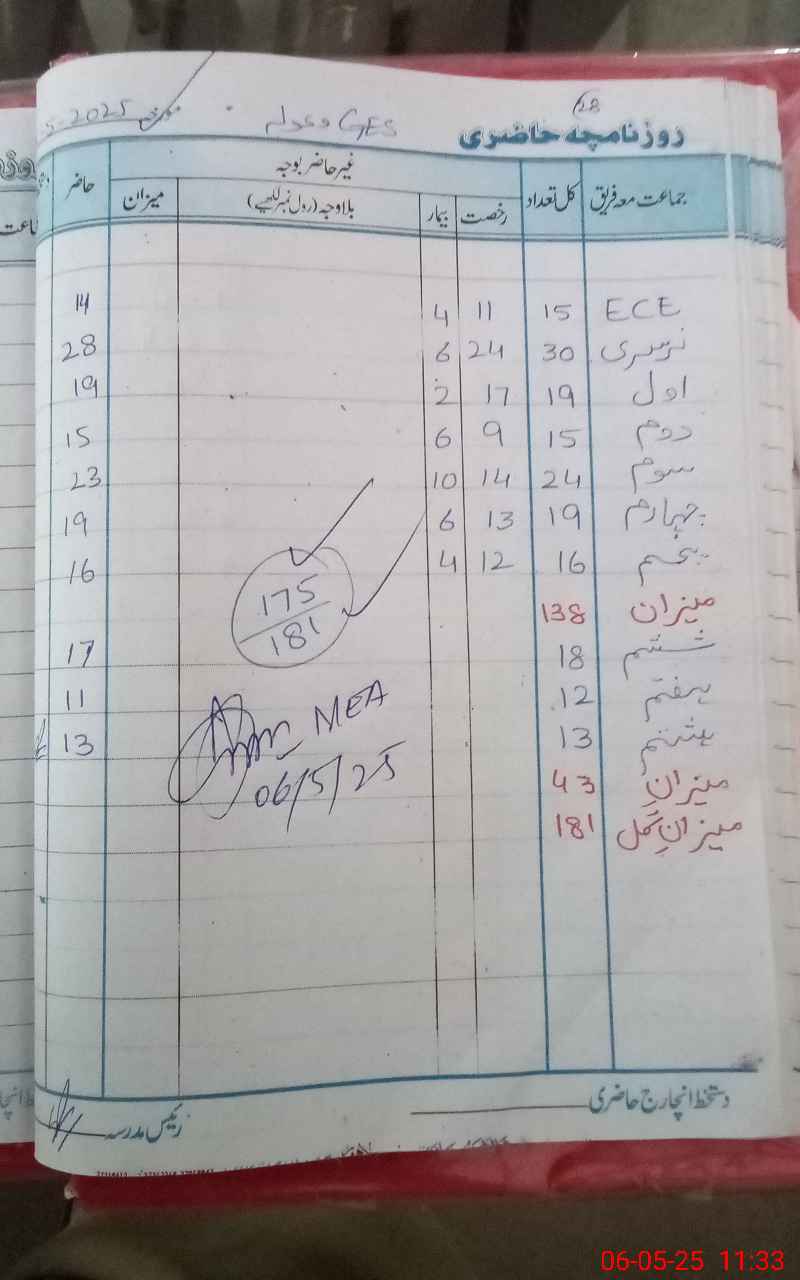 28
روزنامچہ حاضری GES 5-2025
جماعت معہ فریق کل تعداد غیر حاضر بوجہ حاضر
رخصت بیمار بلا وجہ (رول نمبر لکھیے) میزان
ECE 15 11 4 14
نرسری 30 24 6 28
اول 19 17 2 19
دوم 15 9 6 15
سوم 24 14 10 23
چہارم 19 13 6 19
پنجم 16 12 4 16
میزان 138
175
181
ششم 18 17
ہفتم 12 11
ہشتم 13 13
MEA
06/5/25
میزان 43
میزانِ کل 181
دستخط انچارج حاضری رئیس مدرسہ
06-05-25 11:33